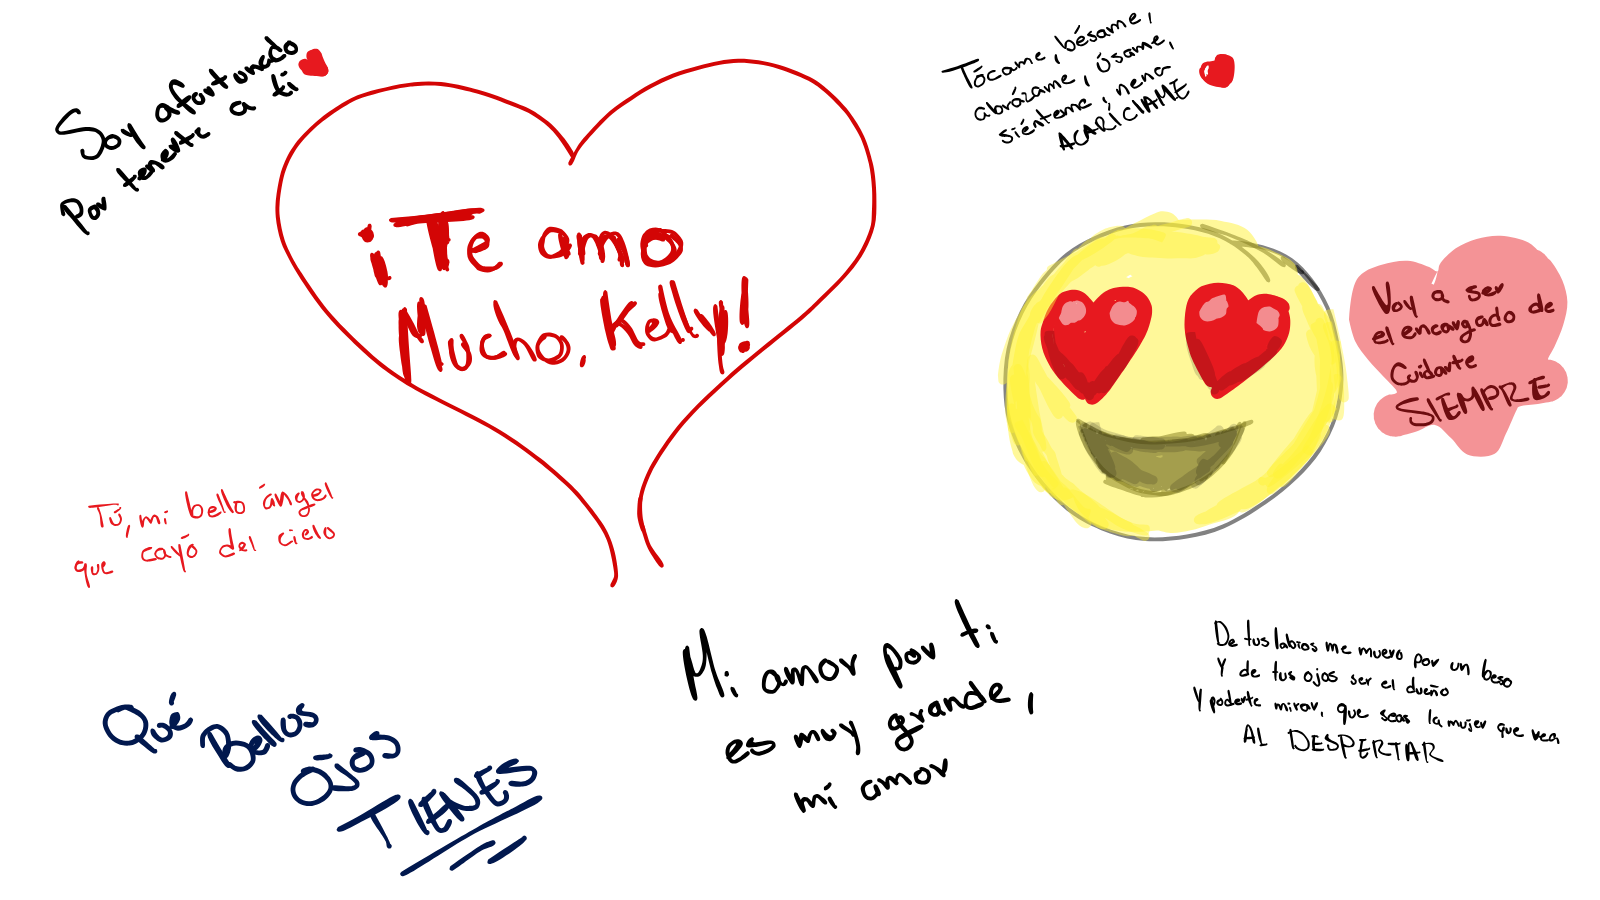 Soy afortunado
Por tenerte a ti
¡Te amo
Mucho, Kelly!
Tócame, bésame,
abrázame, úsame,
siénteme, nena
ACARÍCIAME
Voy a ser
el encargado de
Cuidarte
SIEMPRE
Tú, mi bello ángel
que cayó del cielo
Qué
Bellos
Ojos
TIENES
Mi amor por ti
es muy grande,
mi amor
De tus labios me muero por un beso
Y de tus ojos ser el dueño
Y poderte mirar, que seas la mujer que vea
AL DESPERTAR